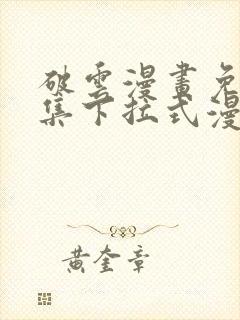 破雲漫畫免
集下拉式漫
黃奎章